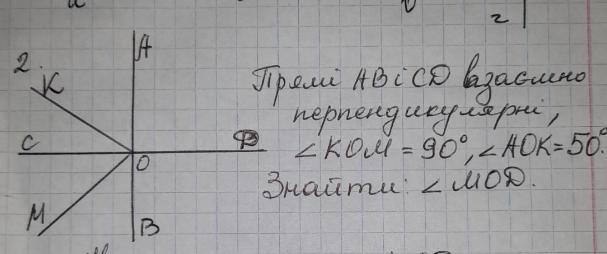 г
2.
A
K
C
O
D
M
B
Прямі AB і CD взаємно
перпендикулярні,
∠KOM = 90°, ∠AOK = 50°.
Знайти: ∠MOD.